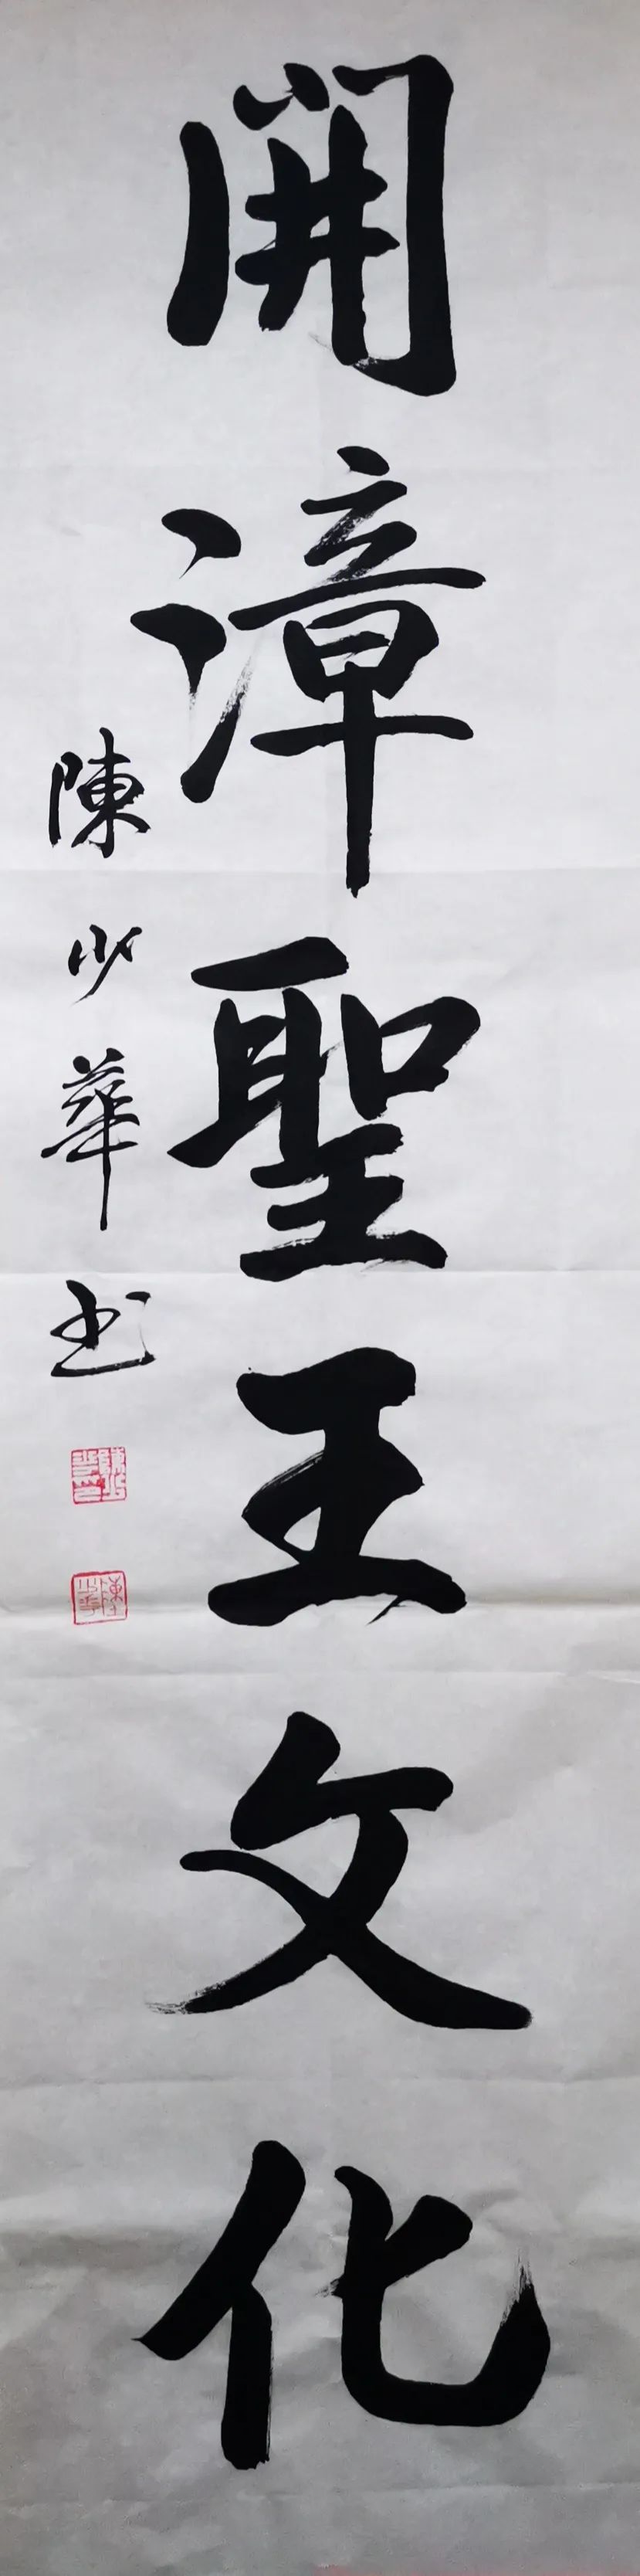 開漳聖王文化
陳少華书